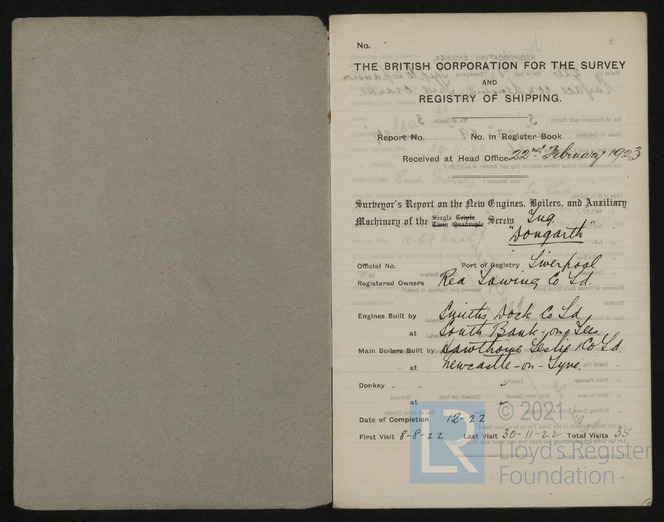 No.
THE BRITISH CORPORATION FOR THE SURVEY
AND
REGISTRY OF SHIPPING.
Report No. No. in Register Book
Received at Head Office 22nd February 1923
Surveyor's Report on the New Engines, Boilers, and Auxiliary
Machinery of the Single Triple Twin Quadruple Screw Tug
"Dongarth"
Official No. Port of Registry Liverpool
Registered Owners Rea Towing Co Ld.
Engines Built by Smiths Dock Co Ld
at South Bank-on-Tees
Main Boilers Built by Hawthorne Leslie & Co Ld.
at Newcastle-on-Tyne.
Donkey " "
at
Date of Completion 12-22
First Visit 8-8-22 Last Visit 30-11-22 Total Visits 35
© 2021
LR
Lloyd's Register
Foundation